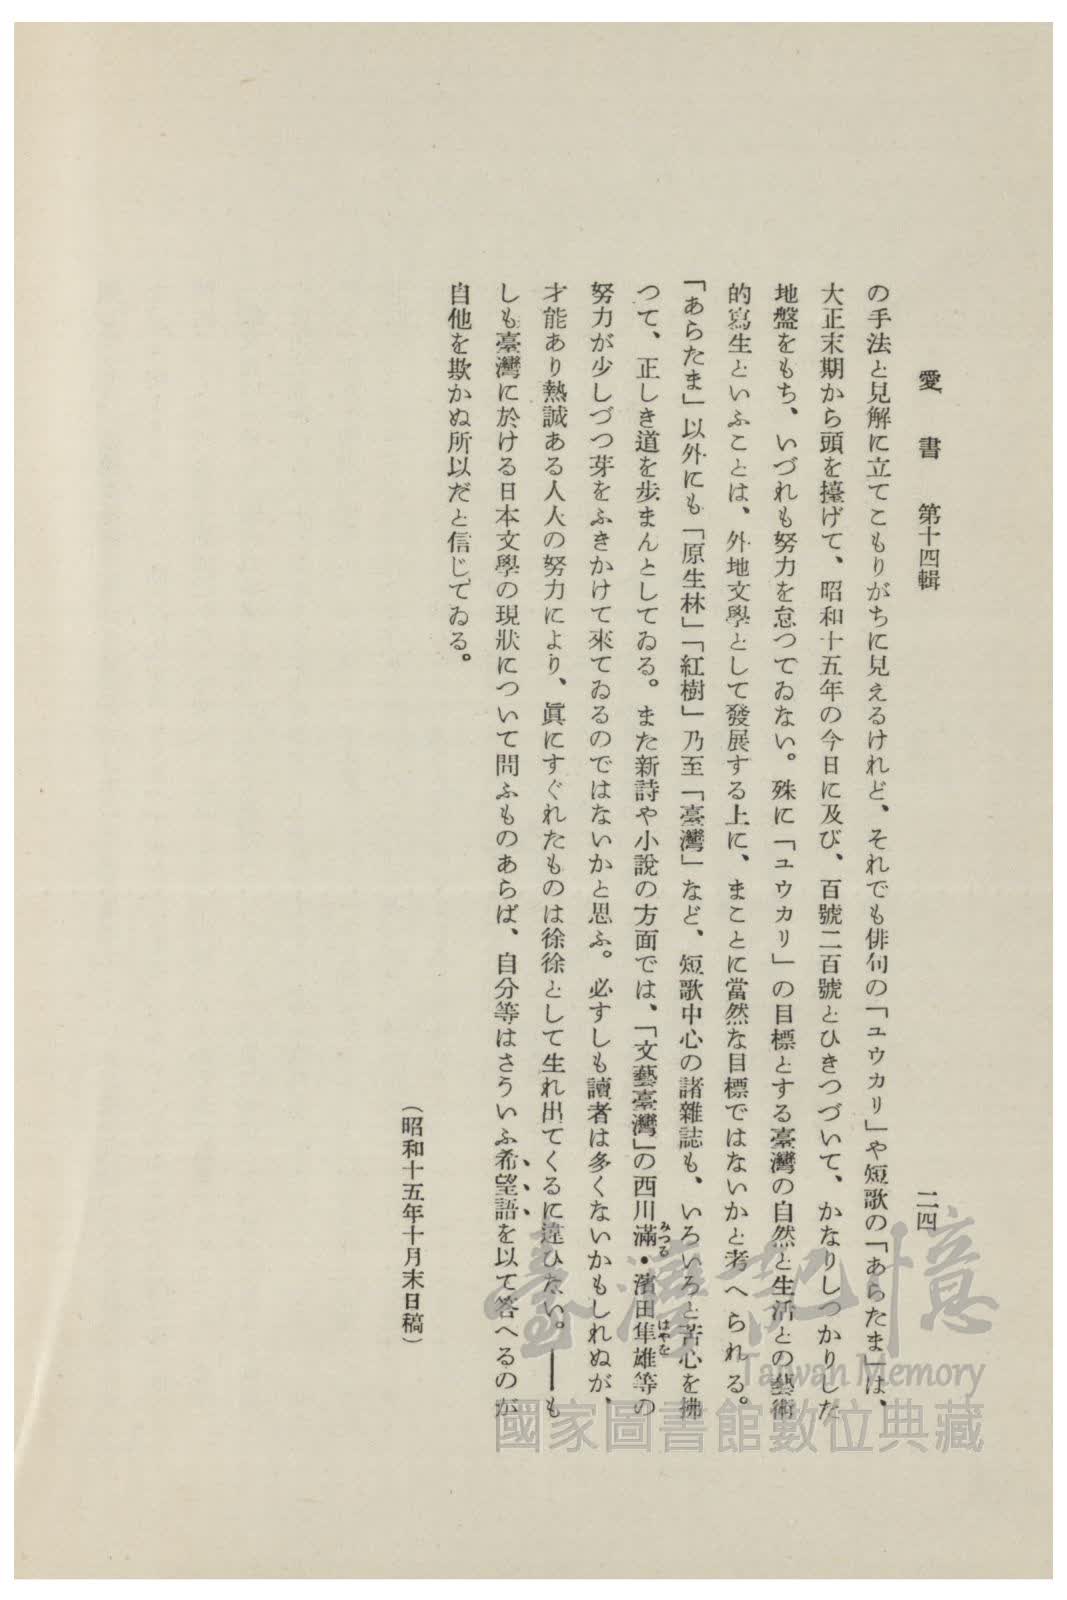 愛書 第十四輯
二四
の手法と見解に立てこもりがちに見えるけれど、それでも俳句の「ユウカリ」や短歌の「あらたま」は、
大正末期から頭を擡げて、昭和十五年の今日に及び、百號二百號とひきつづいて、かなりしつかりした
地盤をもち、いづれも努力を怠つてゐない。殊に「ユウカリ」の目標とする臺灣の自然と生活との藝術
的寫生といふことは、外地文學として發展する上に、まことに當然な目標ではないかと考へられる。
「あらたま」以外にも「原生林」「紅樹」乃至「臺灣」など、短歌中心の諸雜誌も、いろいろと苦心を拂
つて、正しき道を步まんとしてゐる。また新詩や小說の方面では、「文藝臺灣」の西川滿・濱田隼雄等の
みつる
はやを
努力が少しづつ芽をふきかけて來てゐるのではないかと思ふ。必ずしも讀者は多くないかもしれぬが、
才能あり熱誠ある人人の努力により、眞にすぐれたものは徐徐として生れ出てくるに違ひない。――も
しも臺灣に於ける日本文學の現狀について問ふものあらば、自分等はさういふ希望語を以て答へるのが
自他を欺かぬ所以だと信じてゐる。
(昭和十五年十月末日稿)
臺灣記憶
Taiwan Memory
國家圖書館數位典藏